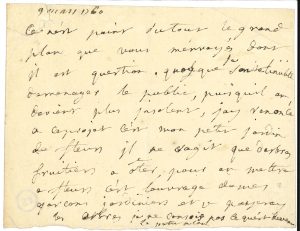 9 mars 1760
Ce n'est point du tout le grand
plan que vous m'envoyés dont
il est question. quoique
demenager le public, puisqu'on
devient plus insolent, jay renoncé
a ce projet c'est mon petit jardin
de fleurs il ne s'agit que d'arbres
fruitiers a oter, pour en mettre
a fleurs c'est l'ouvrage de mes
garçons jardiniers et
les arbres je ne conçois pas ce qu'est devenu
le petit